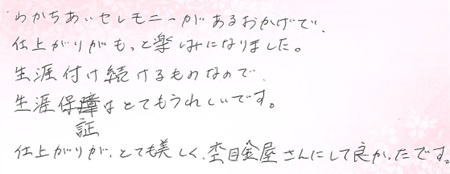 わかちあいセレモニーがあるおかげで、
仕上がりがもっと楽しみになりました。
生涯付け続けるものなので、
生涯保証はとてもうれしいです。
仕上がりが、とても美しく、杢目金屋さんにして良かったです。